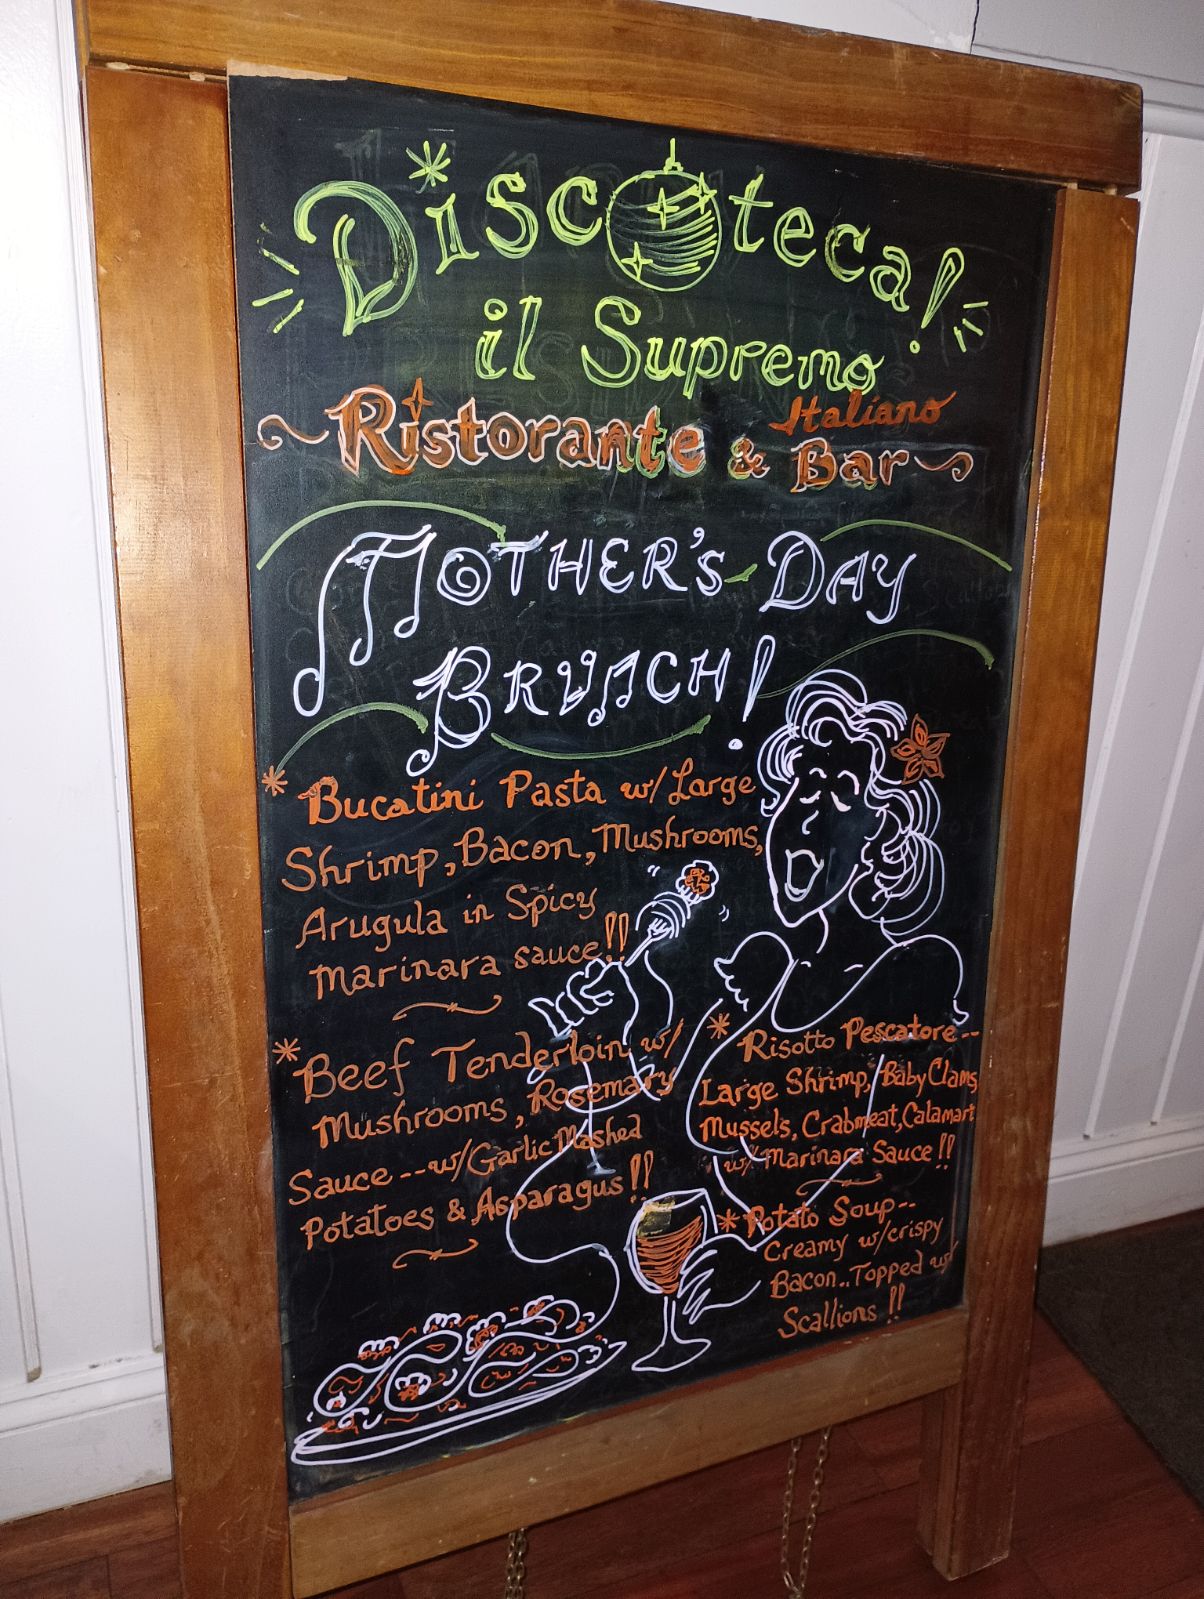 Discoteca!
il Supremo
Ristorante & Italiano Bar
MOTHER'S DAY
BRUNCH!
* Bucatini Pasta w/ Large
Shrimp, Bacon, Mushrooms,
Arugula in Spicy
Marinara sauce!!
* Beef Tenderloin w/
Mushrooms, Rosemary
Sauce -- w/ Garlic Mashed
Potatoes & Asparagus!!
* Risotto Pescatore --
Large Shrimp, Baby Clams,
Mussels, Crabmeat, Calamari
w/ Marinara Sauce!!
* Potato Soup --
Creamy w/ crispy
Bacon.. Topped w/
Scallions!!